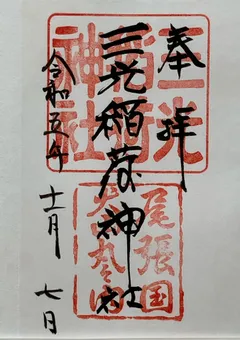 奉拝
三光稲荷神社
令和五年
十一月 七日
三光
稲荷
神社
尾張国